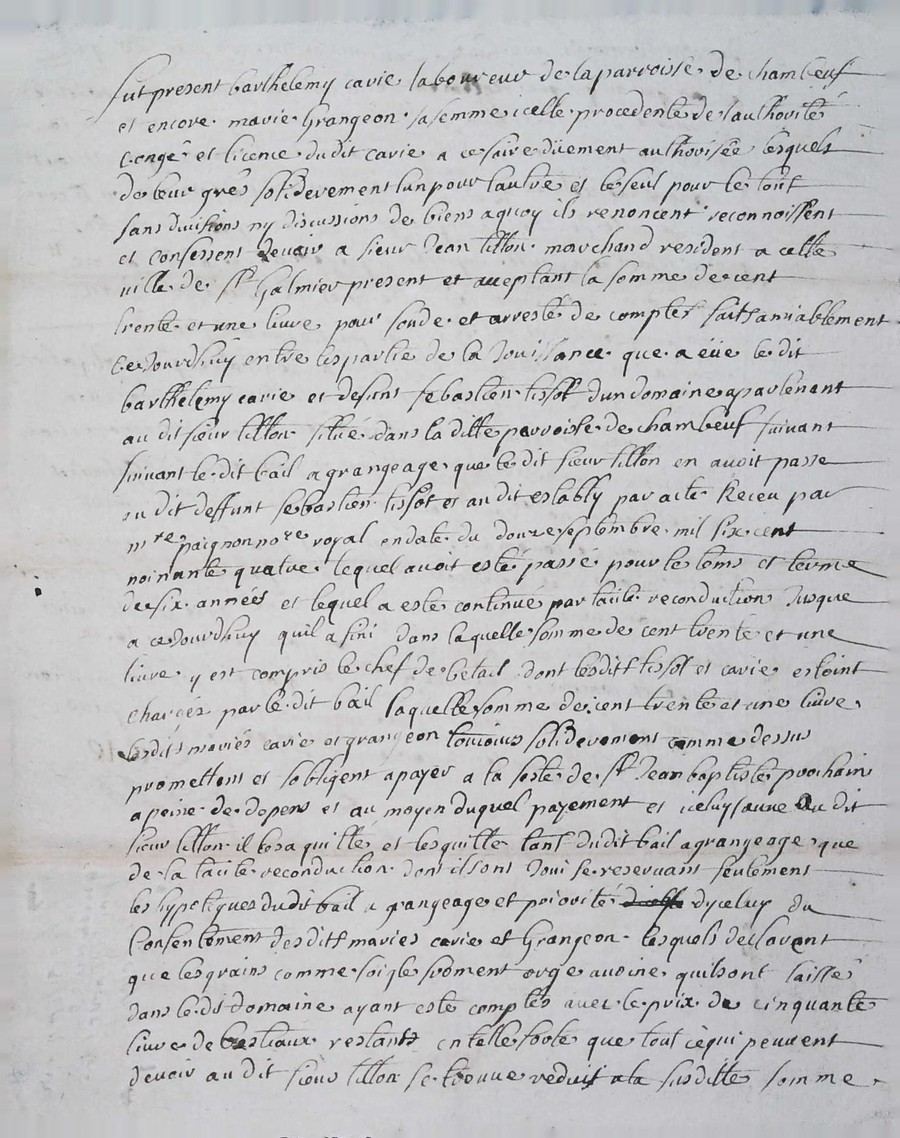 fut present barthelemy carie laboureur de la parroisse de chambeuf
et encore marie Grangeon sa femme icelle procedente de lauthorité
congé et licence dudit carie a ce faire düement authorisée lesquels
de leur grés solidevement lun pour lautre et le seul pour le tout
sans divisions ny discussions de biens a quoy ils renoncent reconnoissent
et confessent devoir a sieur Jean tillon marchand resident a celle
ville de St Galmier present et aceptant la somme de cent
trente et une livre pour solde et arresté de compter faits amiablement
ce Jourdhuy entre les partie de la Jouissance que a eüe le dit
barthelemy carie et defunt sebastien tissot dun domaine apartenant
au dit sieur tillon situé dans la ditte parroisse de chambeuf suivant
suivant le dit bail a grangeage que le dit sieur tillon en avoit passe
au dit deffunt sebastien tissot et audit estably par acte Receu par
mre paignon nore royal en date du douze septembre mil six cent
noinante quatre lequel avoit esté passé pour le tems et terme
de six années et lequel a esté continué par tacite reconduction Jusque
a ce Jourdhuy quil a fini dans laquelle somme de cent trente et une
livre y est compris le chef de betail dont lesdits tissot et carie estoint
charges par le dit bail laquelle somme de cent trente et une livre
lesdits mariés carie et grangeon toujours solidevement comme dessus
promettent et sobligent a payer a la feste de St Jean baptiste prochain
a peine de depens et au moyen duquel payement et iceluy sauve au dit
sieur tillon il les a quittés et les quitte tant dudit bail a grangeage que
de la tacite reconduction dont ils ont Joui se reservant seulement
les hypoteques dudit bail a grangeage et priorité dyceluy du
Consentement desdits maries carie et Grangeon lesquels declarent
que les grains comme soigle froment orge avoine quils ont laissé
dans le dit domaine ayant esté comptés avec le prix de cinquante
livre de bestiaux restants en telle sorte que tout ce qui peuvent
devoir au dit sieur tillon se trouve reduit a la susditte somme